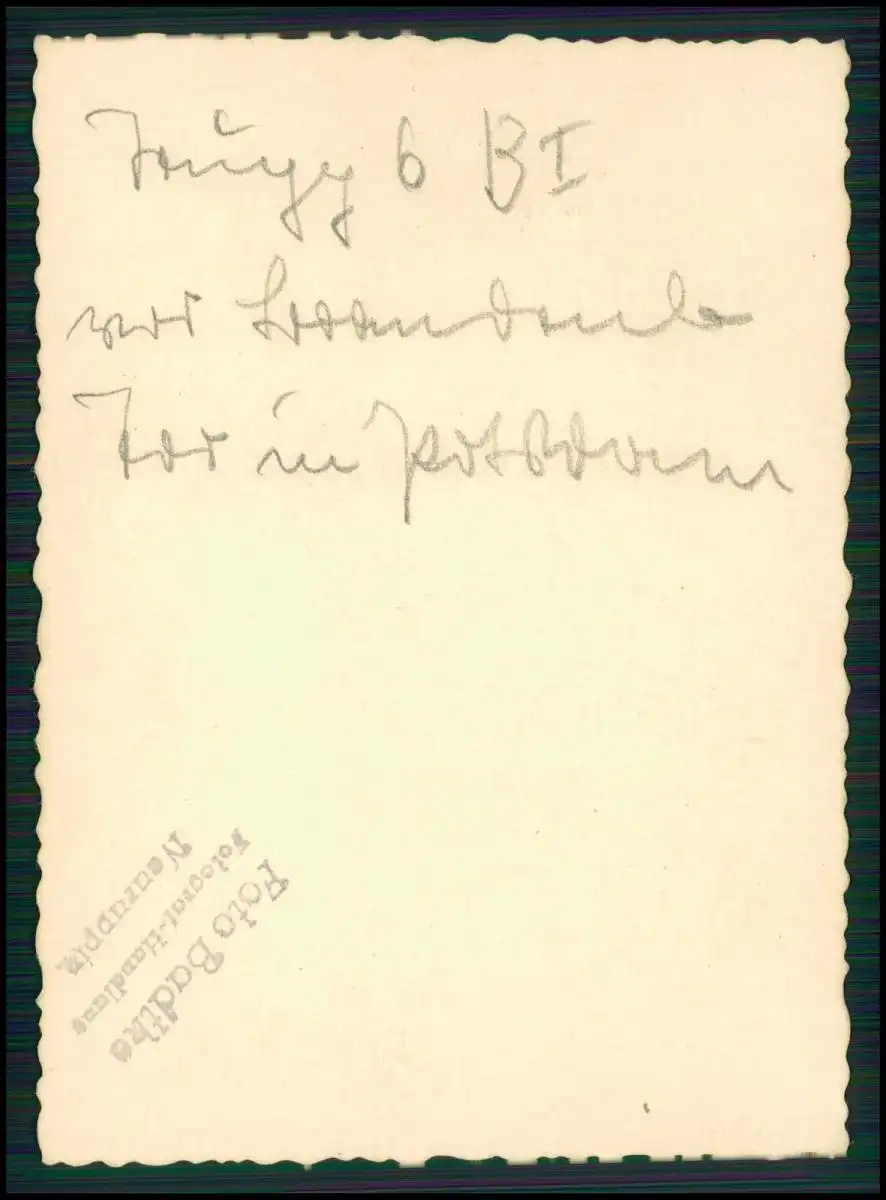 6 B I
vor Brandenb
Tor in Potsdam
Foto Badtke
Fotograf.-Handlung
Neuruppin